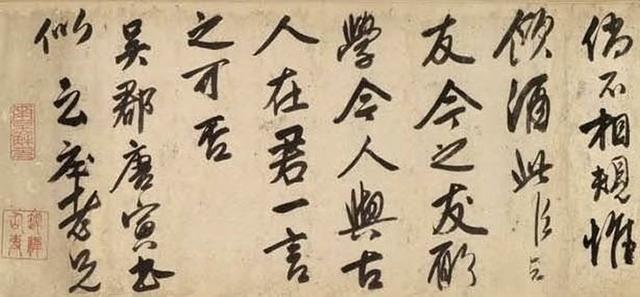 倘不相規惟
飲酒此
友今之友
學今人與古
人在君一言
之可否
吳郡唐寅書
似老兄